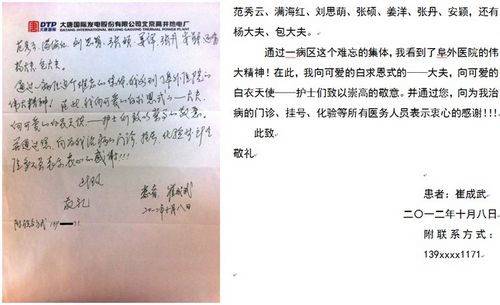 DTP 大唐国际发电股份有限公司北京高井热电厂
大唐国际
范秀云、满海红、刘思萌、张硕、姜洋、张丹、安颖,还有
杨大夫、包大夫。
通过一病区这个难忘的集体,我看到了阜外医院的
伟大精神!在此,我向可爱的白求恩式的——大夫,
向可爱的白衣天使——护士们致以崇高的敬意。
并通过您,向为我治病的门诊、挂号、化验等所有
医务人员表示衷心的感谢!!!
此致
敬礼
患者:崔成武
二〇一二年十月八日
附联系方式:139 71
范秀云、满海红、刘思萌、张硕、姜洋、张丹、安颖,还有
杨大夫、包大夫。
通过一病区这个难忘的集体,我看到了阜外医院的伟
大精神!在此,我向可爱的白求恩式的——大夫,向可爱的
白衣天使——护士们致以崇高的敬意。并通过您,向为我治
病的门诊、挂号、化验等所有医务人员表示衷心的感谢!!!
此致
敬礼
患者:崔成武
二〇一二年十月八日
附联系方式:
139xxxx1171